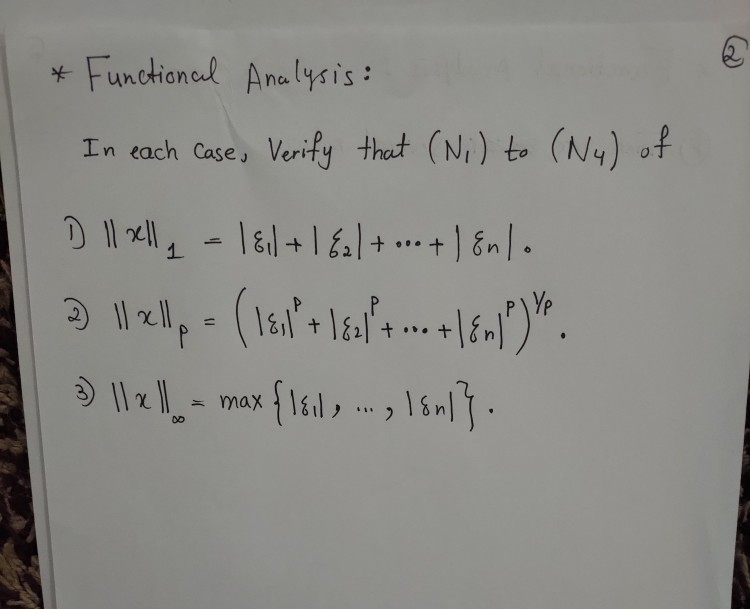 ②
* Functional Analysis:
In each case, Verify that (N₁) to (N₄) of
1) ||x||₁ = |ξ₁| + |ξ₂| + ... + |ξn|.
2) ||x||ₚ = (|ξ₁|^p + |ξ₂|^p + ... + |ξn|^p)^1/p.
3) ||x||∞ = max {|ξ₁|, ..., |ξn|}.